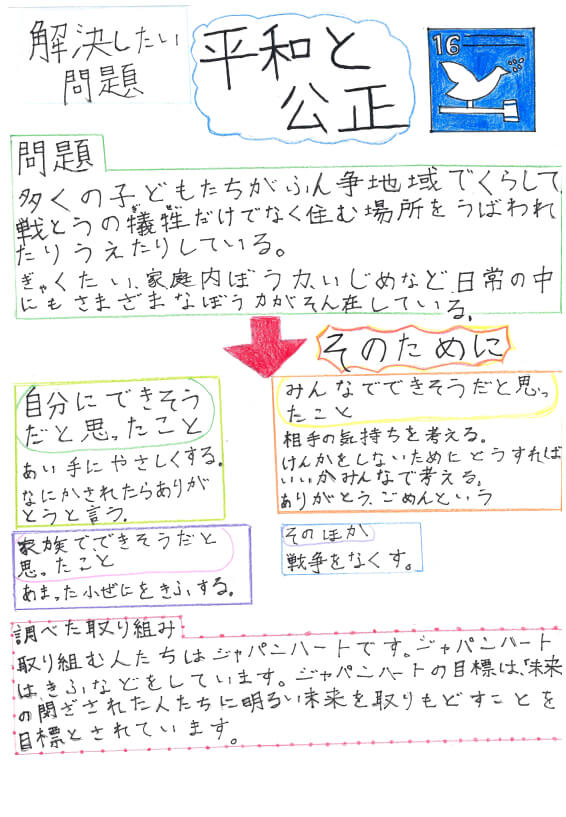 解決したい
問題
平和と
公正
16
問題
多くの子どもたちがふん争地域でくらして
戦とうの犠牲だけでなく住む場所をうばわれ
たりうえたりしている。
ぎゃくたい、家庭内ぼう力、いじめなど、日常の中
にもさまざまなぼう力がそん在している。
そのために
自分にできそう
だと思ったこと
あい手にやさしくする。
なにかされたらありが
とうと言う。
みんなでできそうだと思っ
たこと
相手の気持ちを考える。
けんかをしないためにどうすれば
いいかみんなで考える。
ありがとう、ごめんという
家族で、できそうだと
思ったこと
あまった小ぜにをきふする。
そのほか
戦争をなくす。
調べた取り組み
取り組む人たちはジャパンハートです。ジャパンハート
は、きふなどをしています。ジャパンハートの目標は、「未来
の閉ざされた人たちに明るい未来を取りもどすことを
目標とされています。